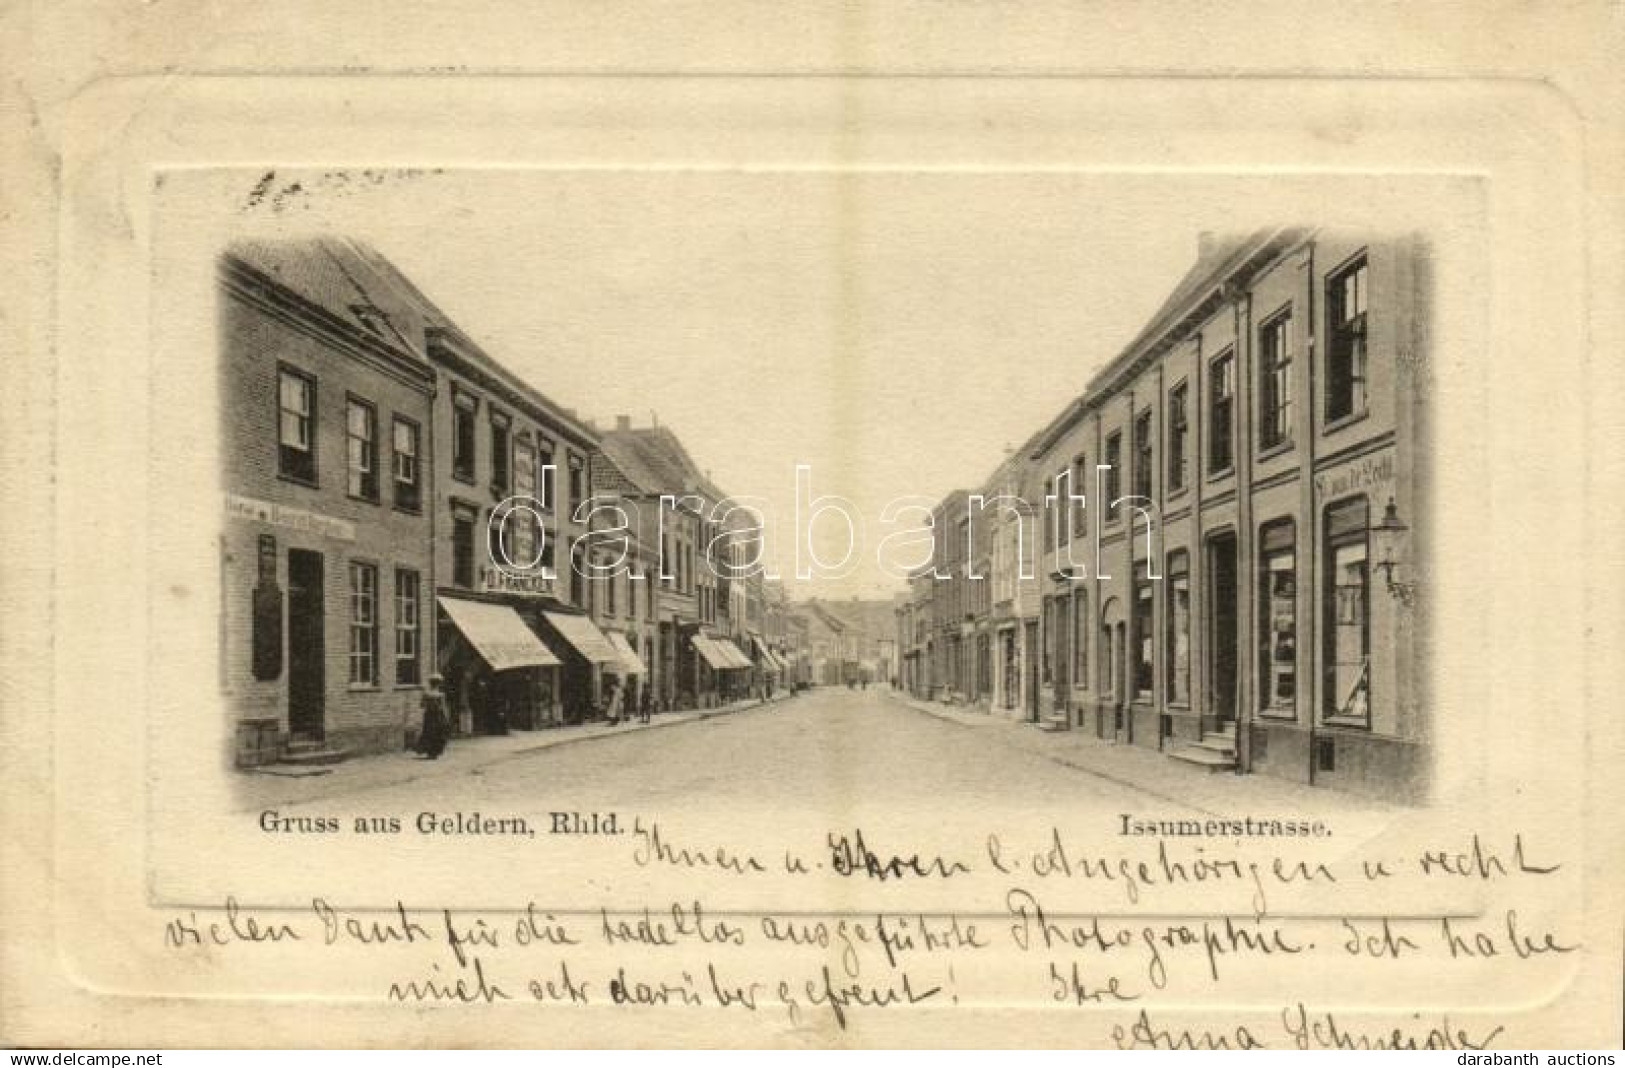 D. FRANCKEN
darabanth
Gruss aus Geldern, Rhld.
Issumerstrasse.
Ihnen u. Ihren l. Angehörigen u recht
vielen Dank für die tadellos ausgeführte Photographie. Ich habe
mich sehr darüber gefreut! Ihre
Anna Schneider
darabanth auctions